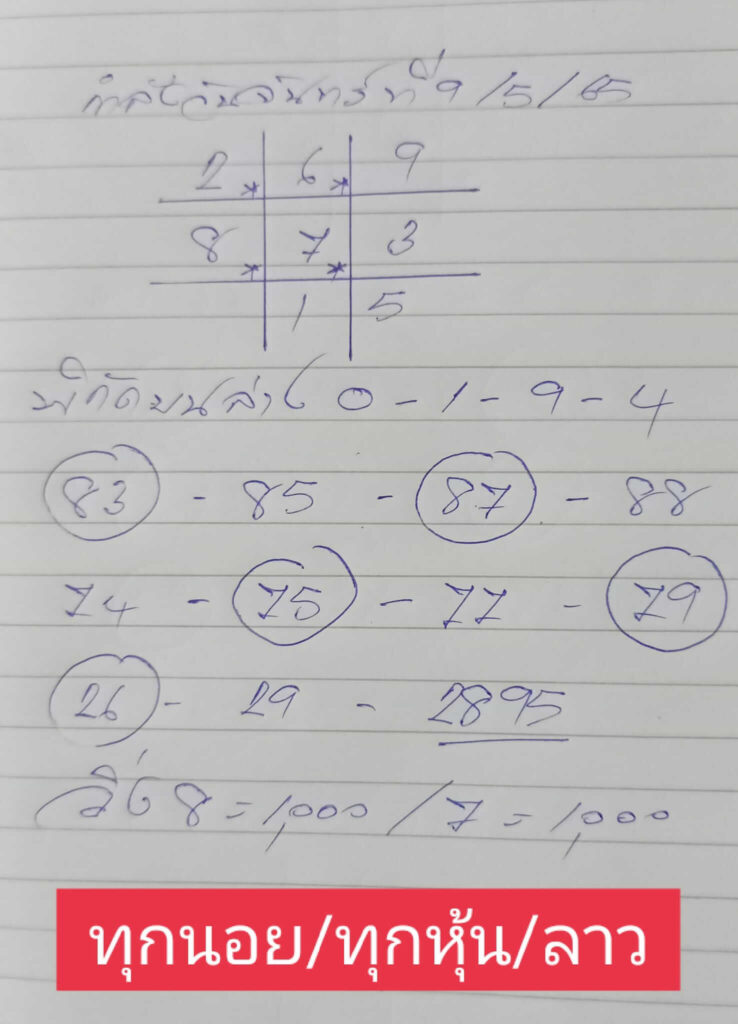 กำลังวันจันทร์ที่ 9/5/65
2 * 6 * 9
8 * 7 * 3
1 5
พิกัดบนล่าง 0-1-9-4
83 - 85 - 87 - 88
74 - 75 - 77 - 79
26 - 29 - 2895
วิ่ง 8 = 1,000 / 7 = 1,000
ทุกนอย/ทุกหุ้น/ลาว